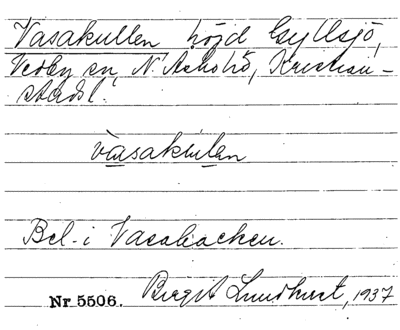 Vasakullen höjd Gyllsjö,
Verby sn N. Åsbo hd, Kristian-
stads l.
vasakulen
Bel. i Vasabacken.
Nr 5506. Birgit Lundkvist, 1937